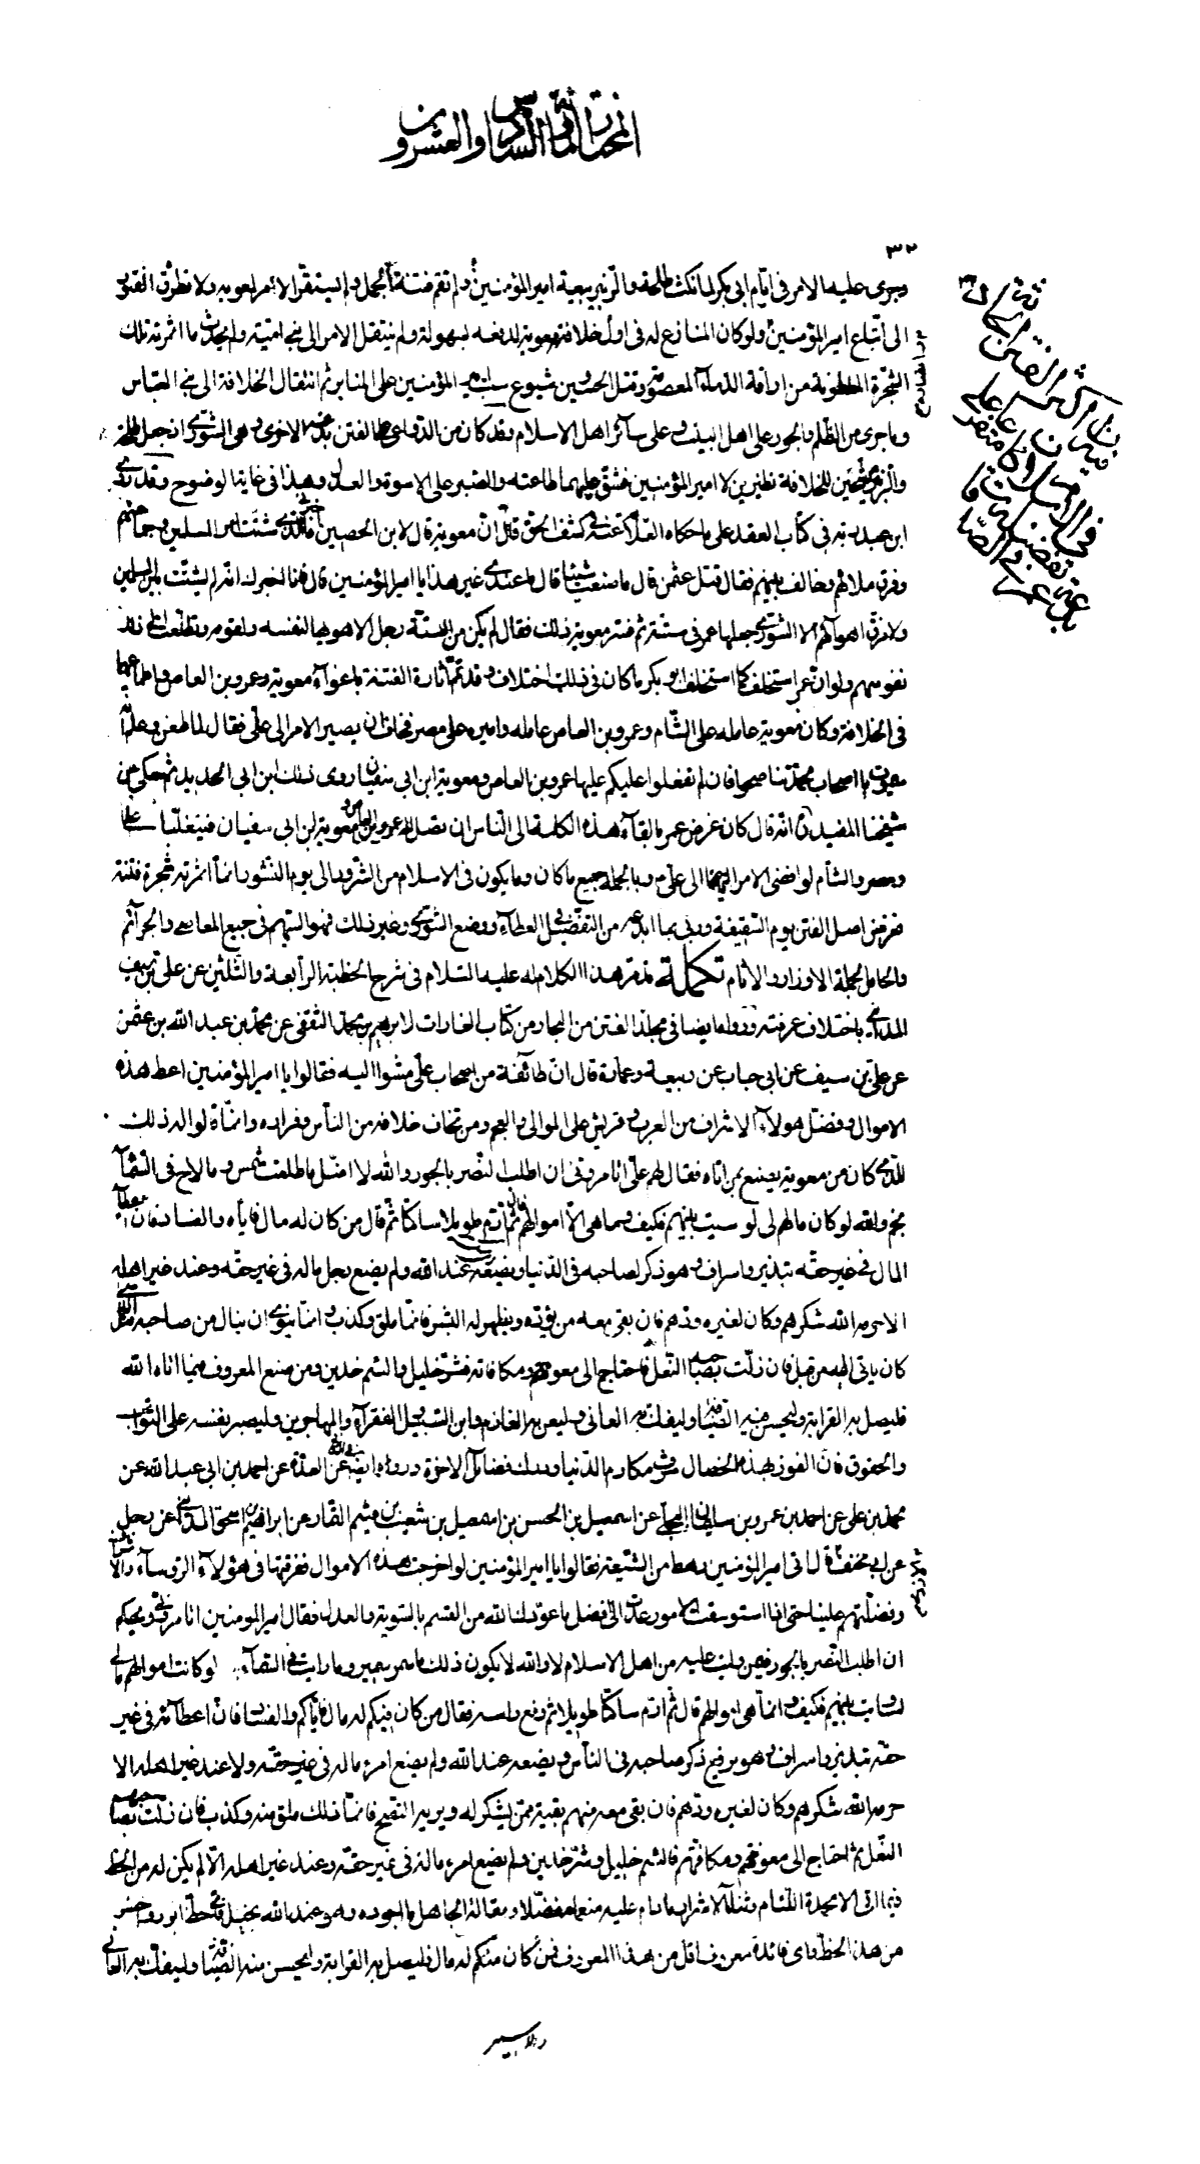 المختار المائة السادس والعشرون
٣٢
وجرى عليه الامر فى ايّام ابى بكر لما نكث طلحة والزّبير بيعة امير المؤمنين ولم تقم فتنة الجمل ولم يستقرّ الامر لمعوية ولا تطرّق الفتق
الى اتّباع امير المؤمنين ولو كان المنازع له فى اوّل خلافته معوية لدفعه بسهولة ولم ينتقل الامر الى بنى اميّة ولم يحدث ما اثمرته تلك
الشجرة الملعونة من اراقة الدّماء المعصومة وقتل الحسين وشيوع سبّ امير المؤمنين على المنابر ثم انتقال الخلافة الى بنى العبّاس
وما جرى من الظّلم والجور على اهل البيت وعلى سآئر اهل الاسلام وقد كان من الدّواعى الى الفتن بدعته الاخرى وهى الشّورى اذ جعل طلحة
والزّبير مرشّحين للخلافة نظيرين لامير المؤمنين فشقّ عليهما طاعته والصّبر على الاسوة والعدل وهذا فى غاية الوضوح وقد روى
ابن عبد ربّه فى كتاب العقد على ما حكاه العلّامة عنه فى كشف الحق قال انّ معوية قال لابن الحصين ما الّذى شتّت امر المسلمين وجماعتهم
وفرّق ملاءهم وخالف بينهم فقال قتل عثمن قال ما صنعت شيئا قال ما عندى غير هذا يا امير المؤمنين قال فانا اخبرك انّه لم يشتّت بين المسلمين
ولا فرّق اهوآئهم الا الشّورى جعلها عمر فى ستّة ثم فسّر معوية ذلك فقال لم يكن من السّتّة رجل الا هويها لنفسه ولقومه وتطلّعت الى ذلك
نفوسهم ولو انّ عمر استخلف كما استخلف ابو بكر ما كان فى ذلك اختلاف وقد تمّ اثارة الفتنة باغوآء معوية وعمرو بن العاص واطماعهما
فى الخلافة وكان معوية عامله على الشّام وعمرو بن العاص عامله واميره على مصر فخاف ان يصير الامر الى علىّ فقال لما طعن وعلم انّه
يموت يا اصحاب محمّد تناصحوا فان لم تفعلوا غلبكم عليها عمرو بن العاص ومعوية ابن ابى سفيان روى ذلك ابن ابى الحديد ثم حكى عن
شيخنا المفيد انّه قال كان غرض عمر بالقآء هذه الكلمة الى النّاس ان تصل الى عمرو بن العاص ومعوية بن ابى سفيان فيتغلّبا على
مصر والشام لو افضى الامر اليهما الى علىّ وبالجملة جميع ما كان وما يكون فى الاسلام من الشّرور الى يوم النّشور انّما اثمرته شجرة فتنة
غرس اصل الفتن يوم السّقيفة وربى بما ابدعه من التّفضيل فى العطآء ووضع الشّورى وغير ذلك فهو السّهيم فى جميع المعاصى والجرآئم
والحامل لجملة الاوزار والاثام تكملة قد مرّ هذا الكلام له عليه السّلام فى شرح الخطبة الرّابعة والثّلثين عن علىّ بن سيف
المداينى باختلاف عرفته ورواه ايضا فى مجلّد الفتن من البحار من كتاب الغارات لابراهيم بن محمّد الثقفى عن محمّد بن عبد الله بن عثمن
عن علىّ بن سيف عن ابى حباب عن ربيعة وعمارة قال انّ طآئفة من اصحاب علىّ مشوا اليه فقالوا يا امير المؤمنين اعط هذه
الاموال وفضّل هولآء الاشراف من العرب وقريش على الموالى والعجم ومن تخاف خلافه من النّاس وفراره وانّما قالوا له ذلك
للّذى كان من معوية يصنع بمن اتاه فقال لهم علىّ اتأمرونى ان اطلب النّصر بالجور والله لا افعل ما طلعت شمس وما لاح فى السّمآء
نجم والله لو كان مالهم لى لواسيت بينهم فكيف وما هى الّا اموالهم قال ثمّ ازم طويلا ساكتا ثمّ قال من كان له مال فايّاه والفساد فانّ اعطآء
المال فى غير حقّه تبذير واسراف وهو ذكر لصاحبه فى الدّنيا ويضيّعه عند الله ولم يضع رجل ماله فى غير حقّه وعند غير اهله
الا حرمه الله شكرهم وكان لغيره ودّهم فان بقى معه من يودّه ويظهر له البشر فانّما ملق وكذب وانّما ينوى ان ينال من صاحبه مثل الّذى
كان ياتى اليه من قبل فان زلّت بصاحبه النّعل فاحتاج الى معونته ومكافاته فشرّ خليل والئم خدين ومن صنع المعروف فيما اتاه الله
فليصل به القرابة وليحسن فيه الضّيافة وليفكّ به العانى وليعن به الغارم وابن السّبيل والفقرآء والمهاجرين وليصبر نفسه على النّوائب
والحقوق فانّ الفوز بهذه الخصال شرف مكارم الدّنيا ودرك فضآئل الاخرة ورواه ايضا عن العدّة عن احمد بن ابى عبد الله عن
محمّد بن على عن احمد بن عمرو بن سليمان البجلى عن اسمعيل بن الحسن بن اسمعيل بن شعيب بن ميثم التّمّار عن ابراهيم بن اسحق المداينى عن رجل
عن ابى مخنف قال اتى امير المؤمنين رهط من الشّيعة فقالوا يا امير المؤمنين لو اخرجت هذه الاموال ففرّقتها فى هؤلآء الرّوسآء والاشراف
وفضّلتهم علينا حتى اذا استوسقت الامور عدت الى افضل ما عوّدك الله من القسم بالسّوية والعدل فقال امير المومنين اتامرونى ويحكم
ان اطلب النّصر بالجور فيمن وليت عليه من اهل الاسلام لا والله لا يكون ذلك ما سمر سمير وما رايت فى السّمآء لو كانت اموالهم مالى
لساويت بينهم فكيف وانّما هى اموالهم قال ثمّ ازم ساكتا طويلا ثم رفع راسه فقال من كان فيكم له مال فايّاكم والفساد فانّ اعطآئه فى غير
حقّه تبذير واسراف وهو يرفع ذكر صاحبه فى النّاس ويضعه عند الله ولم يضع امرء ماله فى غير حقّه ولا عند غير اهله الا
حرمه الله شكرهم وكان لغيره ودّهم فان بقى معه منهم بقيّة ممّن يشكر له ويريه النّصح فانّما ذلك ملق منه وكذب فان زلّت بصاحبهم
النّعل ثم احتاج الى معونتهم ومكافاتهم فالئم خليل وشرّ خدين ولم يضع امرء ماله فى غير حقّه وعند غير اهله الّا لم يكن له من الحظّ
فيما اتى الا محمدة اللّئام وثنآء الاشرار ما دام عليه منعما مفضّلا ومقالة الجاهل ما اجوده وهو عند الله بخيل فاىّ حظّ ابور واخسر
من هذا الحظّ واى فائدة معروف اقلّ من هذا المعروف فمن كان منكم له مال فليصل به القرابة وليحسن منه الضّيافة وليفكّ به العانى